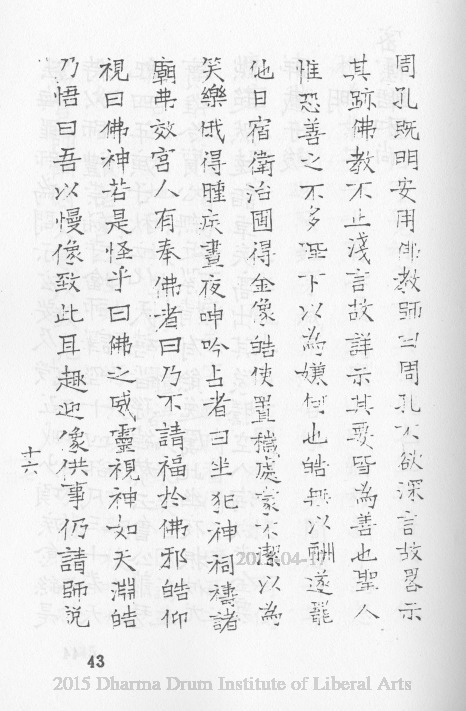 周孔既明安用佛教師曰周孔不欲深言故畧示
其跡佛教不止淺言故詳示其要皆為善也聖人
惟恐善之不多陛下以為嫌何也皓無以酬遂罷
他日宿衛治圃得金像皓使置穢處家不潔以為
笑樂哦得腫疾晝夜呻吟占者曰坐犯神祠禱諸
廟弗效宮人有奉佛者曰乃不請福於佛邪皓仰
視曰佛神若是怪乎曰佛之威靈視神如天淵皓
乃悟曰吾以慢像致此耳趣迎像供事仍請師說
十六
43
2015 Dharma Drum Institute of Liberal Arts